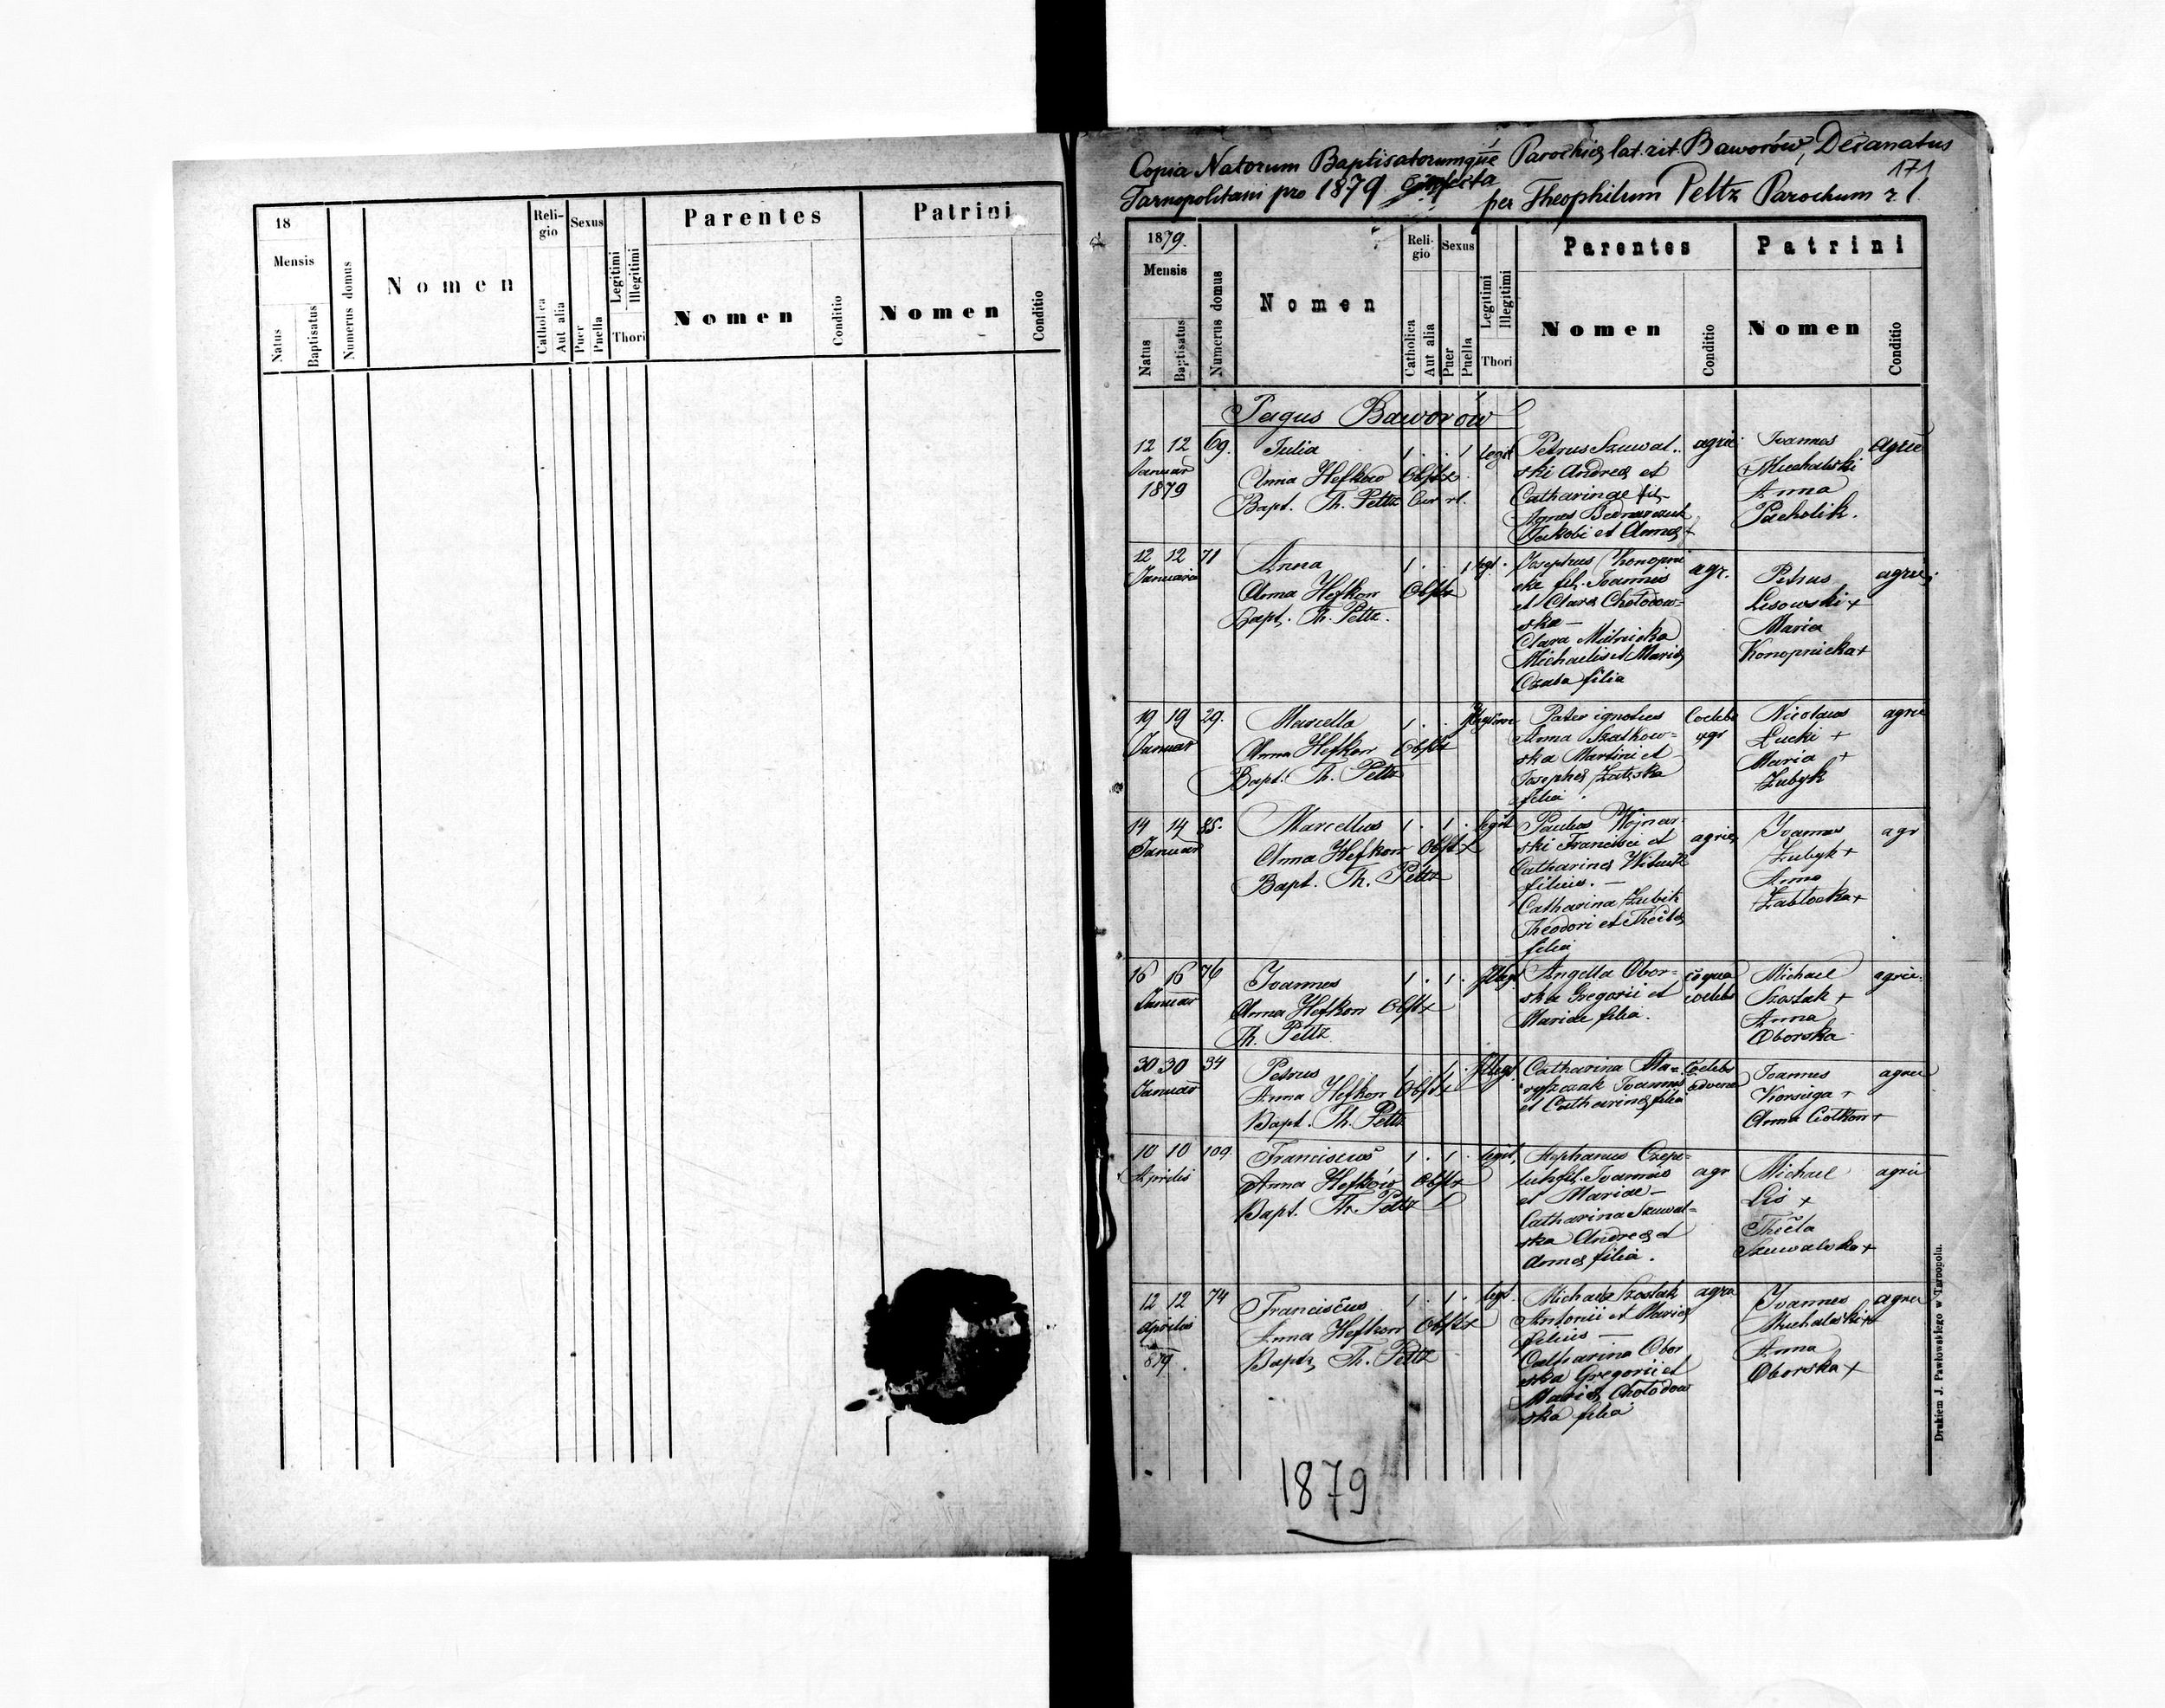 18
Mensis
Natus
Baptisatus
Numerus domus
Nomen
Religio
Catholica
Aut alia
Sexus
Puer
Puella
Legitimi
Illegitimi
Thori
Parentes
Nomen
Conditio
Patrini
Nomen
Conditio
Copia Natorum Baptisatorumque Parochiæ lat. rit. Baworów, Decanatus
171
Tarnopolitani pro 1879 confecta per Theophilum Peltz Parochum r. l.
1879.
Mensis
Natus
Baptisatus
Numerus domus
Nomen
Religio
Catholica
Aut alia
Sexus
Puer
Puella
Legitimi
Illegitimi
Thori
Parentes
Nomen
Conditio
Patrini
Nomen
Conditio
Pagus Baworów
12 12 69. Julia 1 . . 1 legit
Januar
1879
Anna Hefków Obst x
Bapt. Th. Peltz Cur rl.
Petrus Szuwal..
ski Andreæ et
Catharinae fil
Agnes Bednarczuk
Jakobi et Annæ
agric.
Joannes
+ Michalski
Anna
Pacholik.
Agric
12 12 71 Anna 1 . . 1 legt.
Januarii
Anna Hefkow Obst x
Bapt. Th. Peltz.
Josephus Konopni
cke fil. Joannis
et Claræ Chołodow=
ska —
Clara Milnicka
Michaelis et Mariæ
Czaba filia
agr.
Petrus
Lisowski +
Maria
Konopnicka +
agric
19 19 29. Marcella 1 . . 1
Januar
Anna Hefkow Obst x
Bapt. Th. Peltz
Pater ignotus
Anna Szatkow=
ska Martini et
Josephæ
filia
Coelebs
agr
Nicolaus
Łucki +
Maria +
Zubyk
agric
14 14 85. Marcellus 1 . 1 . legit
Januar
Anna Hefkow Obst x
Bapt. Th. Peltz
Paulus Wojnar
ski Francisci et
Catharinæ
filius. —
Catharina Zubik
Theodori et Theclæ
filia
agric
Joannes
Zubyk +
Anna
Zabłocka +
agr
16 16 76 Joannes 1 . 1 . Illegt
Januar
Anna Hefkow Obst x
Th. Peltz
Angella Obor=
ska Gregorii et
Mariae filia.
coqua
coelebs
Michael
Szostak +
Anna
Oborska
agric.
30 30 34 Petrus 1 . 1 . Illegt
Januar
Anna Hefkow Obst x
Bapt. Th. Peltz
Catharina
Joannis
et Catharinæ filia
Coelebs
advena
Joannes
Korsuga +
Anna Ciotkow +
agric
10 10 109. Franciscus 1 . 1 . legit,
Aprilis
Anna Hefków Obst x
Bapt. Th. Peltz
Stephanus Czepe=
luh fil. Joannis
et Mariae —
Catharina Szuwal=
ska Andreæ et
Annæ filia.
agr
Michael
Lis +
Thecla
Szuwalska +
agric
12 12 74 Franciscus 1 . 1 . legt.
Aprilis
879.
Anna Hefkow Obst x
Bapt, Th. Peltz
Michael Szostak
Antonii et Mariæ
filius —
Catharina Obor
ska Gregorii et
Mariæ Chołodow
ska filia
agric
Joannes
Michalski +
Anna
Oborska +
agric
1879
Drukiem J. Pawłowskiego w Tarnopolu.